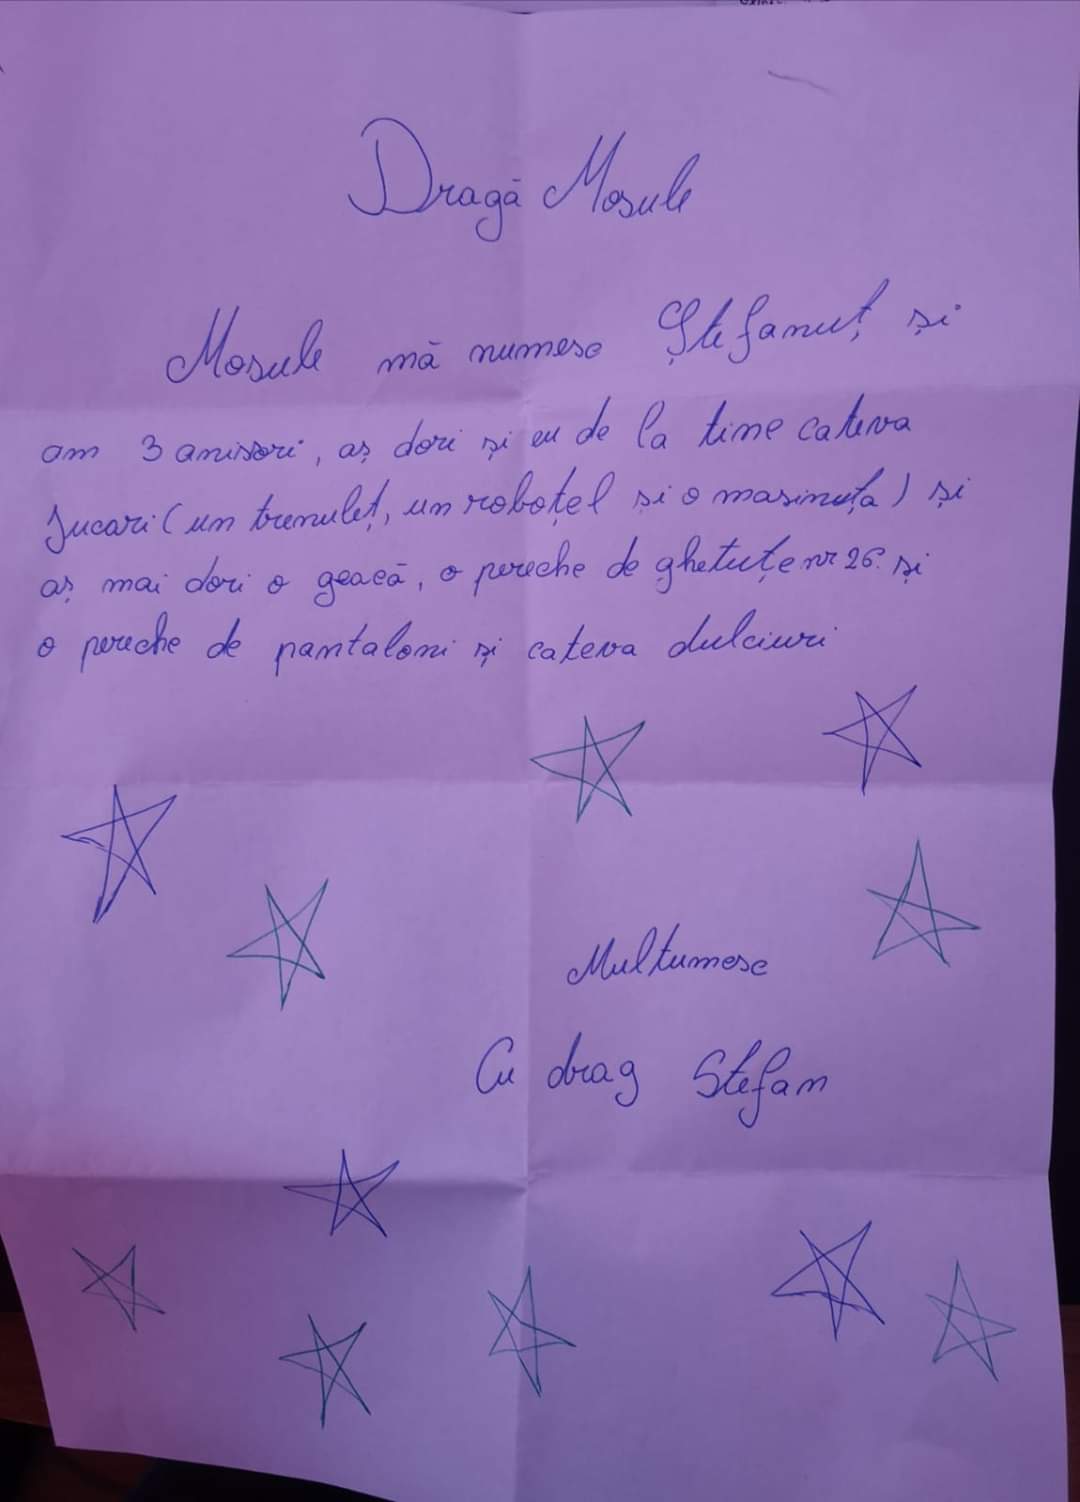 Dragă Mosule
Mosule mă numesc Ștefanuț și
am 3 anisori, aș dori și eu de la tine cateva
Jucari (un trenuleț, un roboțel si o masinuța) și
aș mai dori o geacă, o pereche de ghetuțe nr 26. și
o pereche de pantaloni și cateva dulciuri
Multumesc
Cu drag Stefan